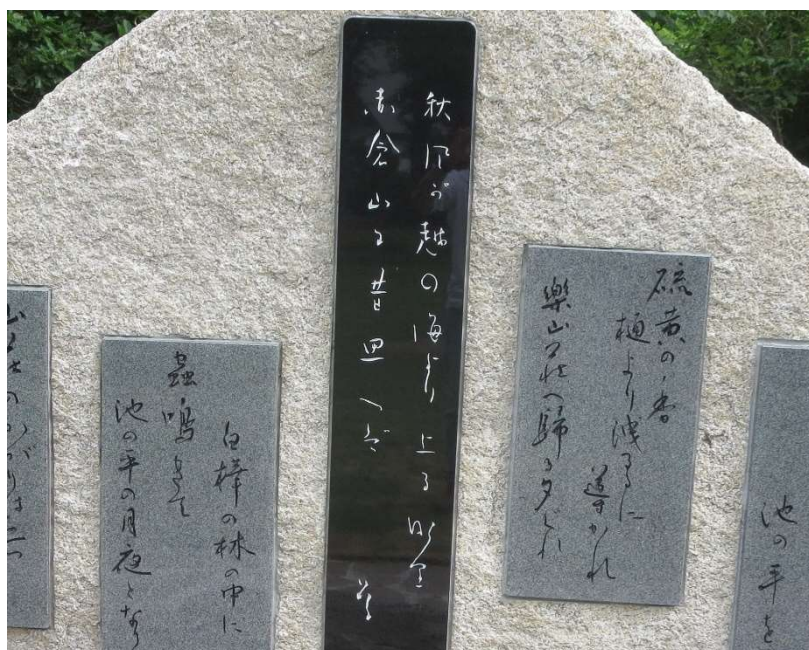 池の平を
硫黄の香
樋より洩るに
導かれ
樂山荘へ歸る夕ぐれ
秋風が越の海より上る
赤倉山 昔思へば
白樺の林の中に
蟲鳴きて
池の平の月夜となり